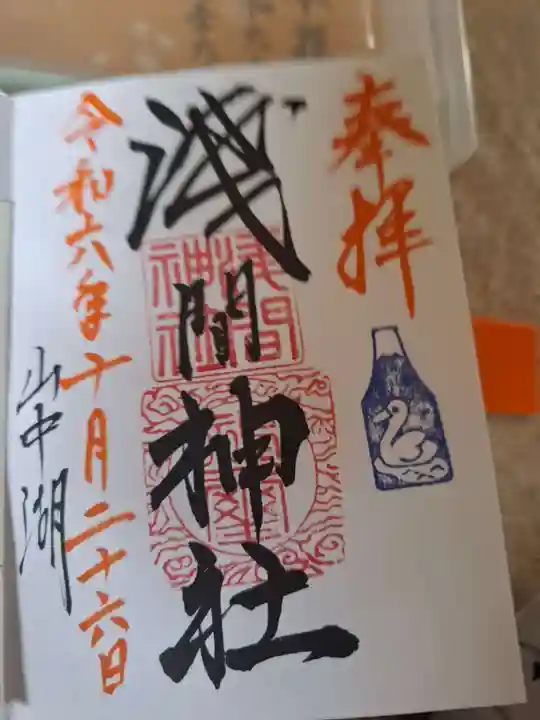 奉拝
浅間神社
浅間
神社
令和六年十月二十六日
山中湖